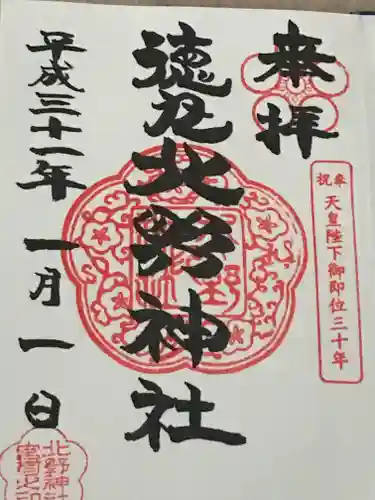 奉拝
奉祝 天皇陛下御即位三十年
徳丸北野神社
平成三十一年 一月一日
北野神社